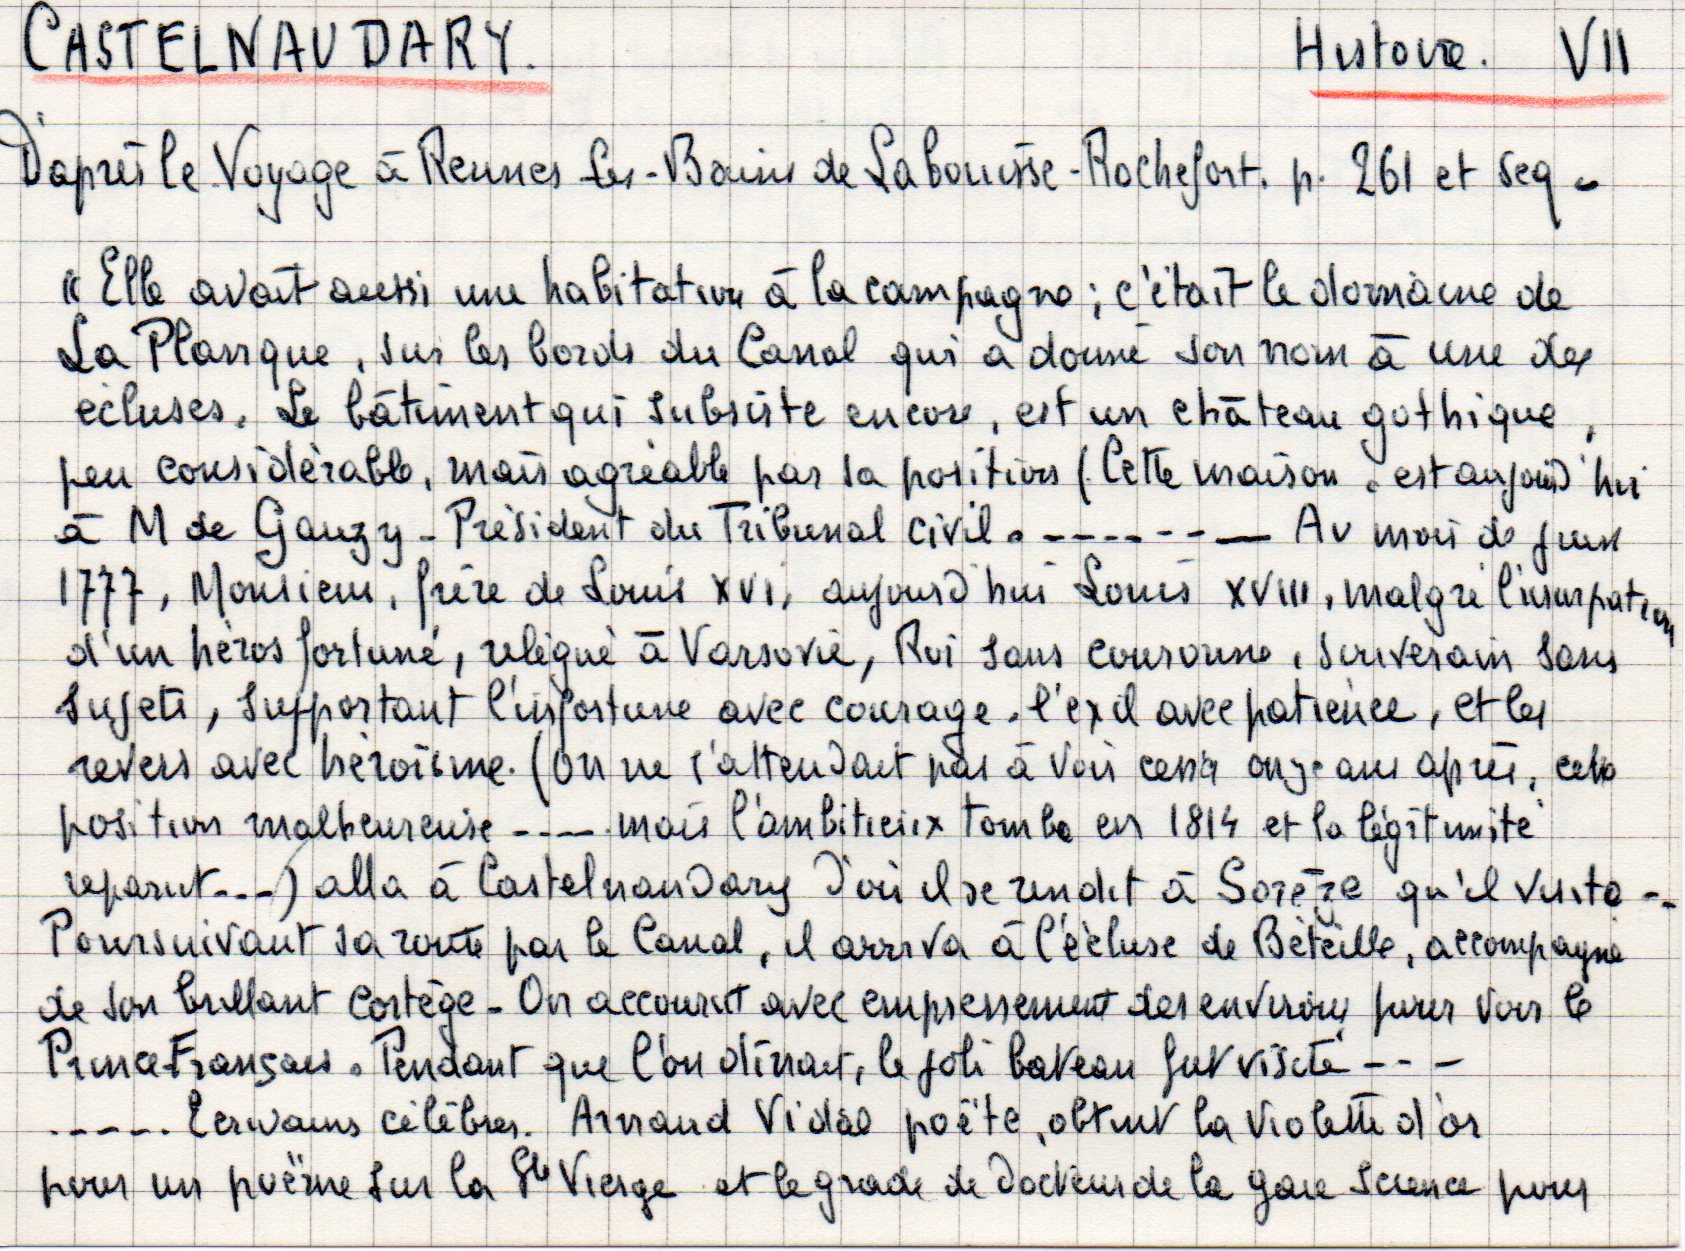 CASTELNAUDARY. Histoire. VII
D'après le Voyage à Rennes les-Bains de Labouïsse-Rochefort. p. 261 et seq -
"Elle avait aussi une habitation à la campagne ; c'était le domaine de
La Planque, sur les bords du Canal qui a donné son nom à une des
écluses. Le bâtiment qui subsiste encore, est un château gothique,
peu considérable, mais agréable par sa position (Cette maison est aujourd'hui
à M de Gauzy - Président du Tribunal civil. ------- Au mois de juin
1777, Monsieur, frère de Louis XVI, aujourd'hui Louis XVIII, malgré l'usurpation
d'un héros fortuné, relégué à Varsovie, Roi sans couronne, souverain sans
sujets, supportant l'infortune avec courage, l'exil avec patience, et les
revers avec héroïsme. (On ne s'attendait pas à voir cesser onze ans après, cette
position malheureuse ---- mais l'ambitieux tomba en 1814 et la légitimité
reparut ---) alla à Castelnaudary d'où il se rendit à Sorèze qu'il visita --
Poursuivant sa route par le Canal, il arriva à l'écluse de Béteille, accompagné
de son brillant cortège - On accourut avec empressement des environs pour voir le
Prince Français. Pendant que l'on dînait, le joli bateau fut visité ---
----- Ecrivains célèbres. Arnaud Vidal poëte, obtint la violette d'or
pour un poëme sur la Ste Vierge et le grade de docteur de la gaie science pour